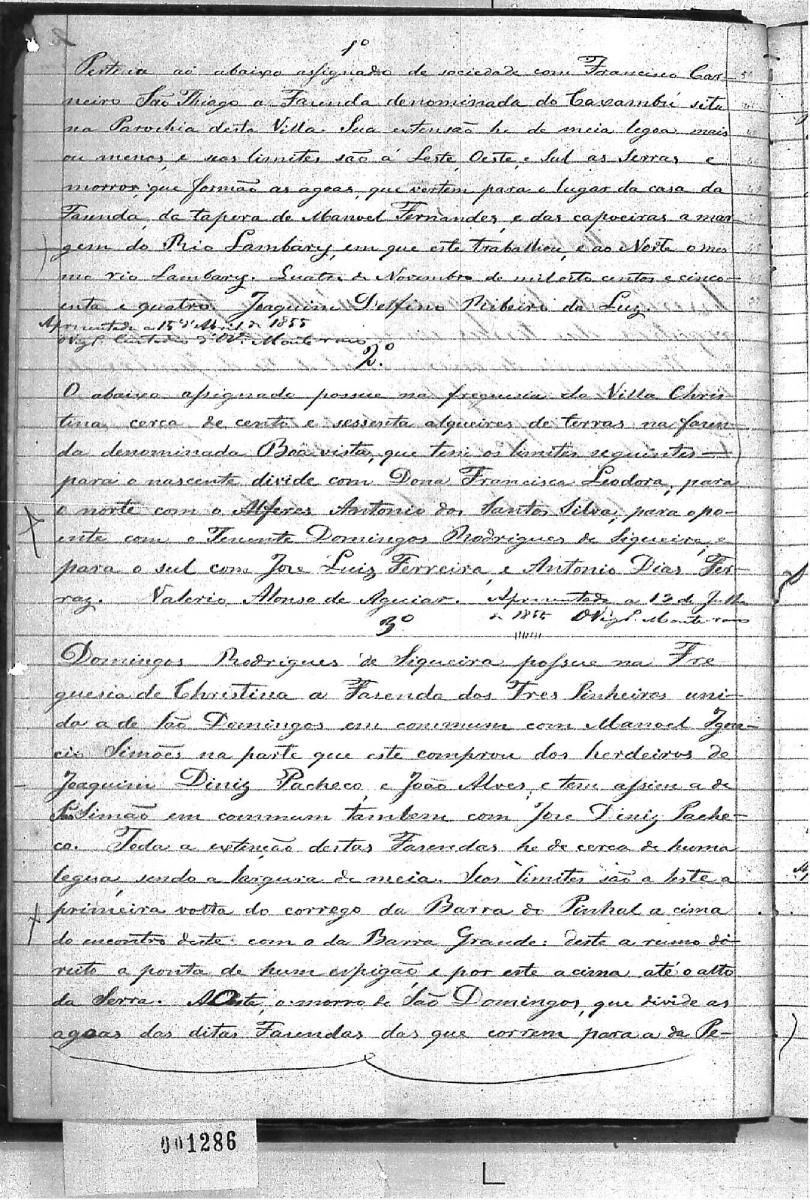 1º
Pertence ao abaixo assignado de sociedade com Francisco Car-
neiro São Thiago a Fazenda denominada do Caxambú sita
na Parochia desta Villa. Sua extensão he de meia legoa mais
ou menos, e seos limites são á Leste, Oeste, e Sul as Serras e
morros, que formão as agoas, que vertem para o lugar da casa da
Fazenda, da tapera de Manoel Fernandes, e das capoeiras a mar-
gem do Rio Lambary, em que este trabalhou, e ao Norte o mes-
mo rio Lambary. Quatro de Novembro de mil oito centos e cinco-
enta e quatro. Joaquim Delfino Ribeiro da Luz.
Aprezentada a 15 d'Abril de 1855
O Vigº
2º
O abaixo assignado possue na freguesia da Villa Chris-
tina cerca de cento e sessenta alqueires de terras na fazen-
da denominada Boa vista, que tem os limites seguintes —
para o nascente divide com Dona Francisca Leodora, para
o norte com o Alferes Antonio dos Santos Silva, para o po-
ente com o Tenente Domingos Rodrigues de Siqueira, e
para o sul com Jose Luiz Ferreira, e Antonio Dias Fer-
raz. Valerio Alonso de Aguiar. Aprezentada a 12 de Julho
de 1855 O Vigº Monte raso
3º
Domingos Rodrigues de Siqueira possue na Fre
guesia de Christina a Fazenda dos Tres Pinheiros uni-
da a de São Domingos em commum com Manoel Igna-
cio Simões na parte que este comprou dos herdeiros de
Joaquim Diniz Pacheco, e João Alves, e tem assim a de
São Simão em commum tambem com Jose Diniz Pache-
co. Toda a extenção destas Fasendas he de cerca de huma
legua, sendo a largura de meia. Seos limites são a leste a
primeira volta do corrego da Barra do Pinhal a cima
do encontro deste com o da Barra Grande: deste a rumo di-
reito a ponta de hum espigão, e por este acima até o alto
da Serra. A Oeste, o morro de São Domingos, que divide as
agoas das ditas Fasendas das que correm para a da Pe-
001286